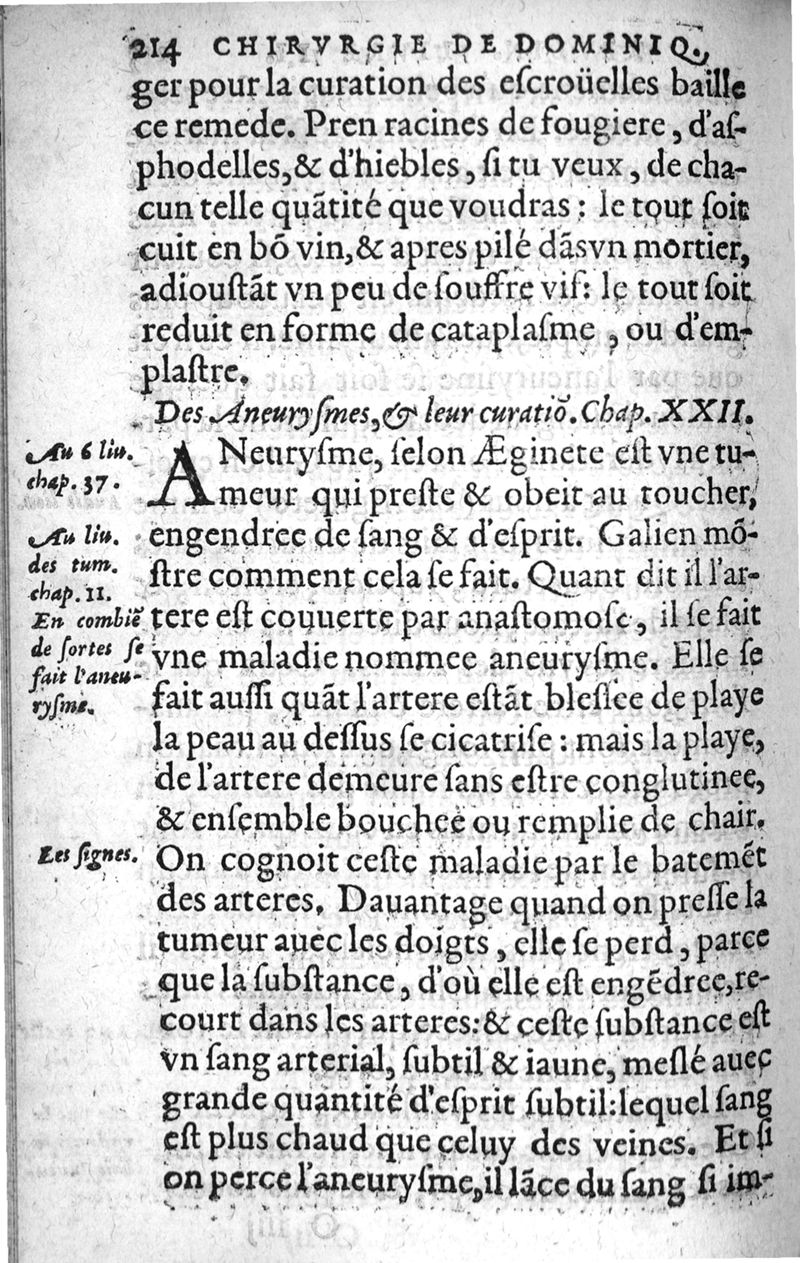 214 CHIRVRGIE DE DOMINIQ.
ger pour la curation des eſcroüelles baille
ce remede. Pren racines de fougiere, d'aſ-
phodelles, & d'hiebles, ſi tu veux, de cha-
cun telle quãtité que voudras : le tout ſoit
cuit en bõ vin, & apres pilé dãsvn mortier,
adiouſtãt vn peu de ſouffre vif: le tout ſoit
reduit en forme de cataplaſme, ou d'em-
plaſtre.
Des Aneuryſmes, & leur curatiõ. Chap. XXII.
Au 6 liu.
chap. 37.
ANeuryſme, ſelon Æginete eſt vne tu-
meur qui preſte & obeit au toucher,
Au liu.
des tum.
chap. 11.
engendree de ſang & d'eſprit. Galien mõ-
ſtre comment cela ſe fait. Quant dit il l'ar-
En combiẽ
de ſortes ſe
fait l'aneu-
ryſme.
tere eſt couuerte par anaſtomoſe, il ſe fait
vne maladie nommee aneuryſme. Elle ſe
fait auſſi quãt l'artere eſtãt bleſſee de playe
la peau au deſſus ſe cicatriſe : mais la playe,
de l'artere demeure ſans eſtre conglutinee,
& enſemble boucheé ou remplie de chair.
Les ſignes.
On cognoit ceſte maladie par le batemẽt
des arteres. Dauantage quand on preſſe la
tumeur auec les doigts, elle ſe perd, parce
que la ſubſtance, d'où elle eſt engẽdree, re-
court dans les arteres: & ceſte ſubſtance eſt
vn ſang arterial, ſubtil & iaune, meſlé auec
grande quantité d'eſprit ſubtil: lequel ſang
eſt plus chaud que celuy des veines. Et ſi
on perce l'aneuryſme, il lãce du ſang ſi im-